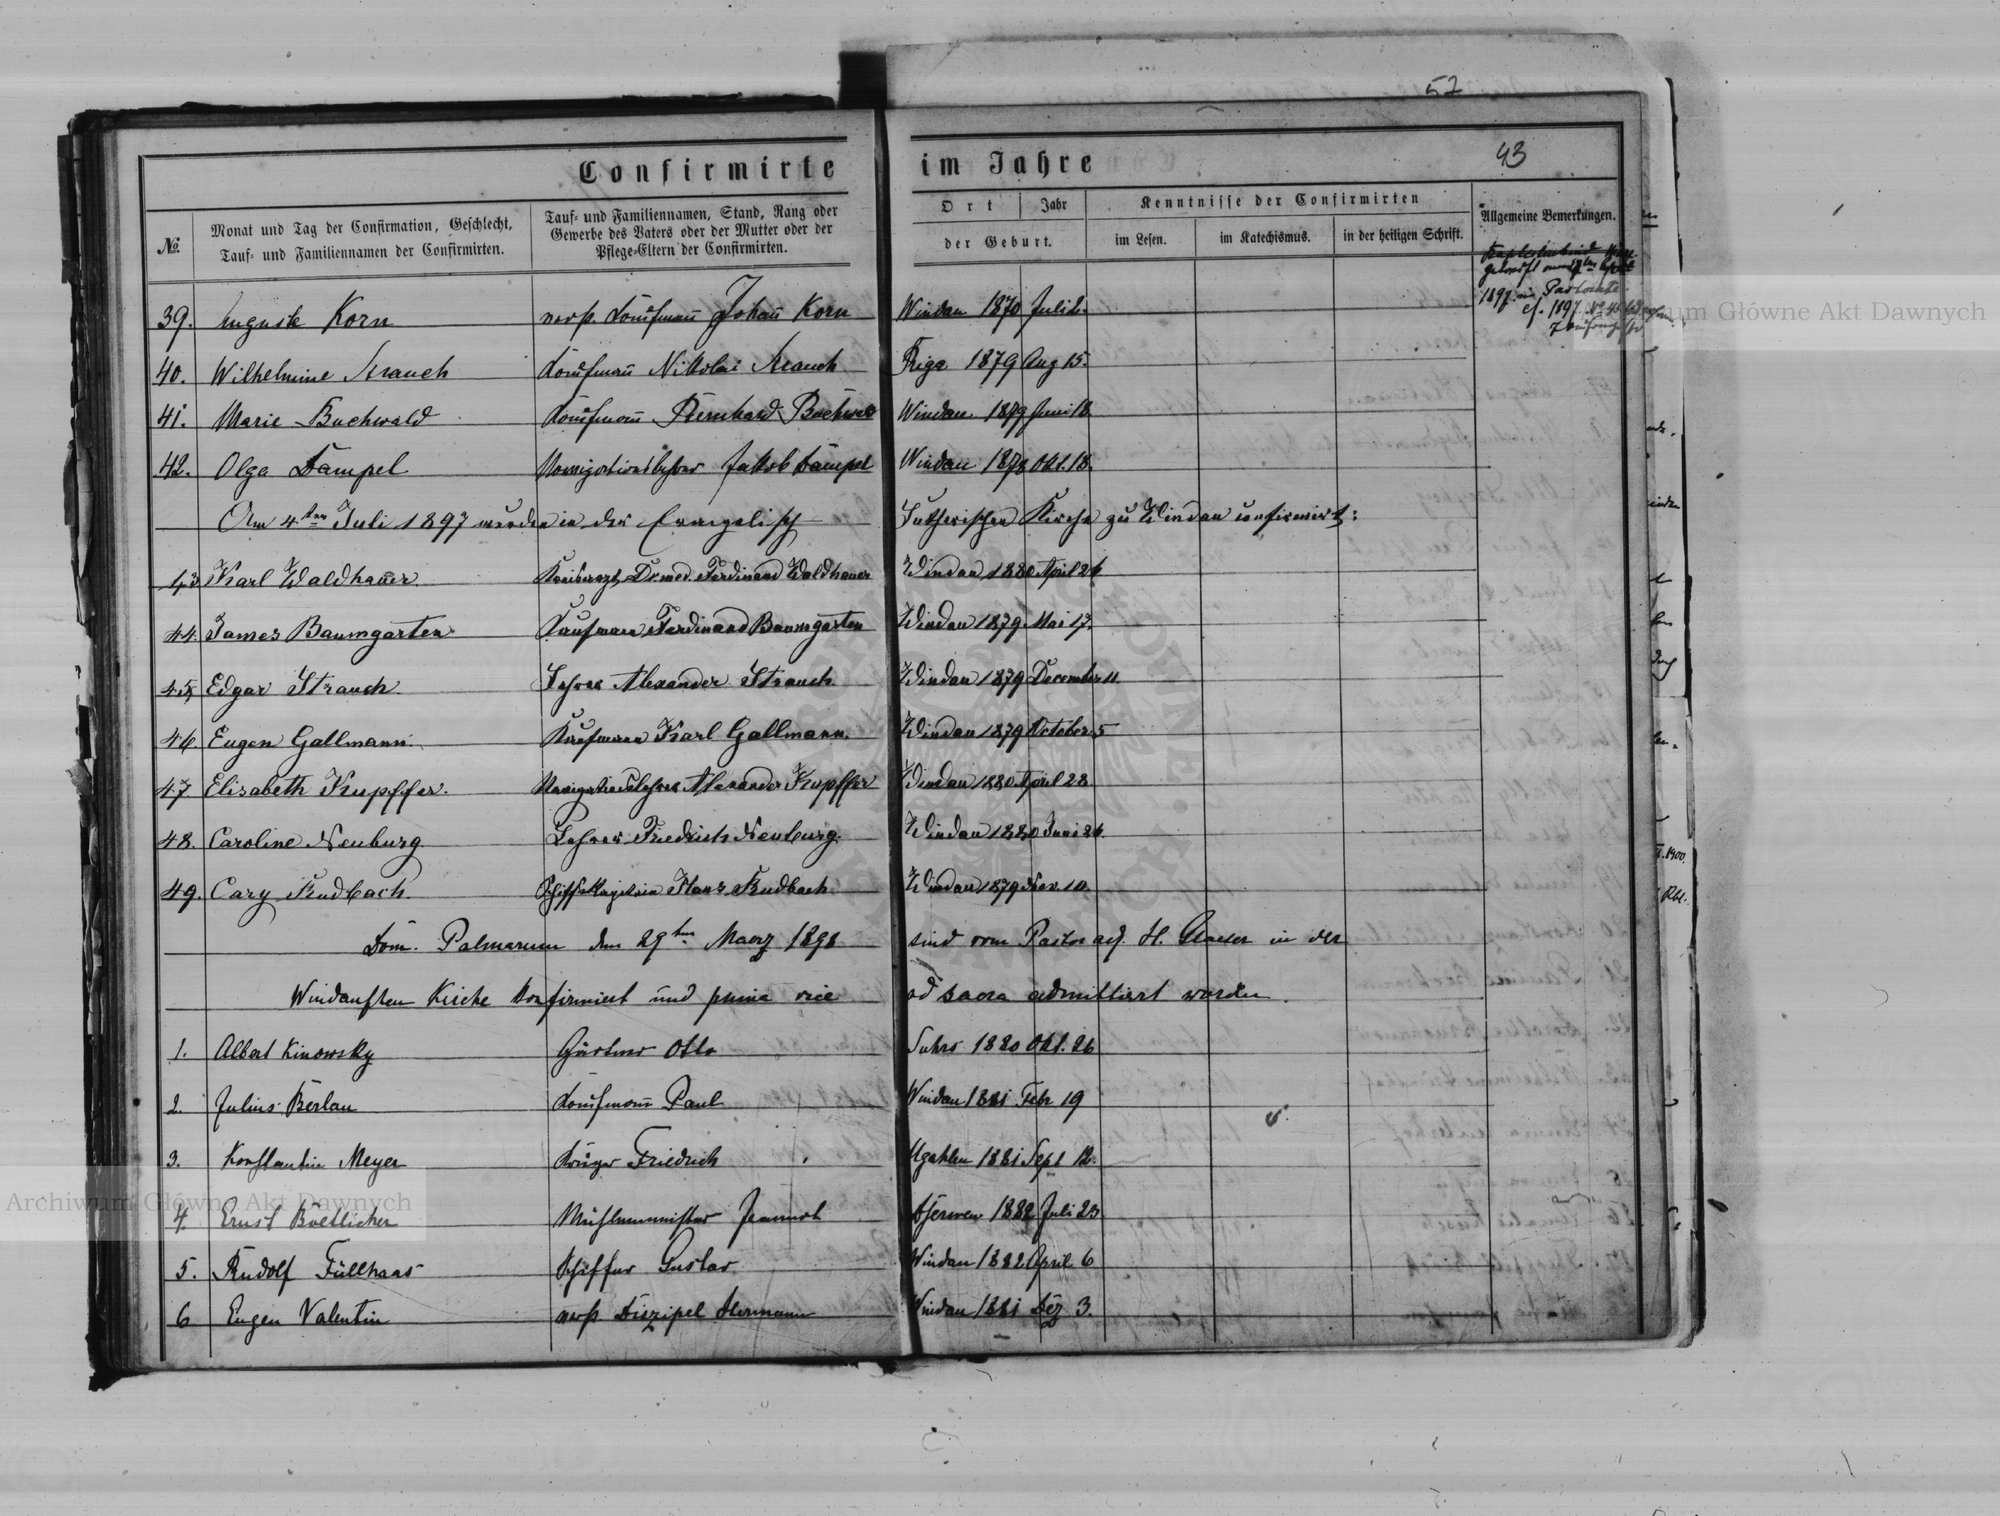 57
43
Confirmirte im Jahre
No.
Monat und Tag der Confirmation, Geschlecht,
Tauf- und Familiennamen der Confirmirten.
Tauf- und Familiennamen, Stand, Rang oder
Gewerbe des Vaters oder der Mutter oder der
Pflege-Eltern der Confirmirten.
Ort Jahr
der Geburt.
Kenntnisse der Confirmirten
im Lesen. im Katechismus. in der heiligen Schrift.
Allgemeine Bemerkungen.
1897 im Pastorate
cf. 1897 No
39. Auguste Korn verst. Kaufmann Johann Korn Windau 1870 Juli 2.
40. Wilhelmine Strauch Kaufmann Nikolai Strauch Riga 1879 Aug 15.
41. Marie Buchwald Kaufmann Bernhard Windau 1879 Juni 18
42. Olga Dampel Navigationslehrer Jakob Dampel Windau 1878 Okt. 18.
Am 4ten Juli 1897 wurden in der Evangelisch Lutherischen Kirche zu Windau confirmirt:
43 Karl Waldhauer Kreisarzt Dr. med. Ferdinand Waldhauer Windau 1880 April 26
44. James Baumgarten Kaufmann Ferdinand Baumgarten Windau 1879 Mai 17.
45 Edgar Strauch Lehrer Alexander Strauch Windau 1879 December 11.
46 Eugen Gallmann Kaufmann Karl Gallmann. Windau 1879 October 5
47 Elisabeth Kupffer. Navigationslehrer Alexander Kupffer Windau 1880 April 28
48. Caroline Neuburg Lehrer Friedrich Neuburg. Windau 1880 Juni 26
49. Cary Rudbach. Schiffskapitän Hans Rudbach. Windau 1879 Nov. 10.
Dom. Palmarum den 29ten Maerz 1898 sind vom Pastor adj. H. in der
Windauschen Kirche konfirmiert und prima vice ad sacra admittiert worden.
1. Albert Kinowsky Gärtner Otto 1880 Okt. 26
2. Julius Berlau Kaufmann Paul Windau 1881 Febr 19
3. Konstantin Meyer Krüger Friedrich Ugahlen 1881 Sept 12.
4. Ernst Boettlicher Mühlenmeister Jeannot 1882 Juli 23
5. Rudolf Füllhaas Schiffer Gustav Windau 1882 April 6
6 Eugen Valentin verst Diszipel Hermann Windau 1881 Dez 3.
Archiwum Główne Akt Dawnych
Archiwum Główne Akt Dawnych